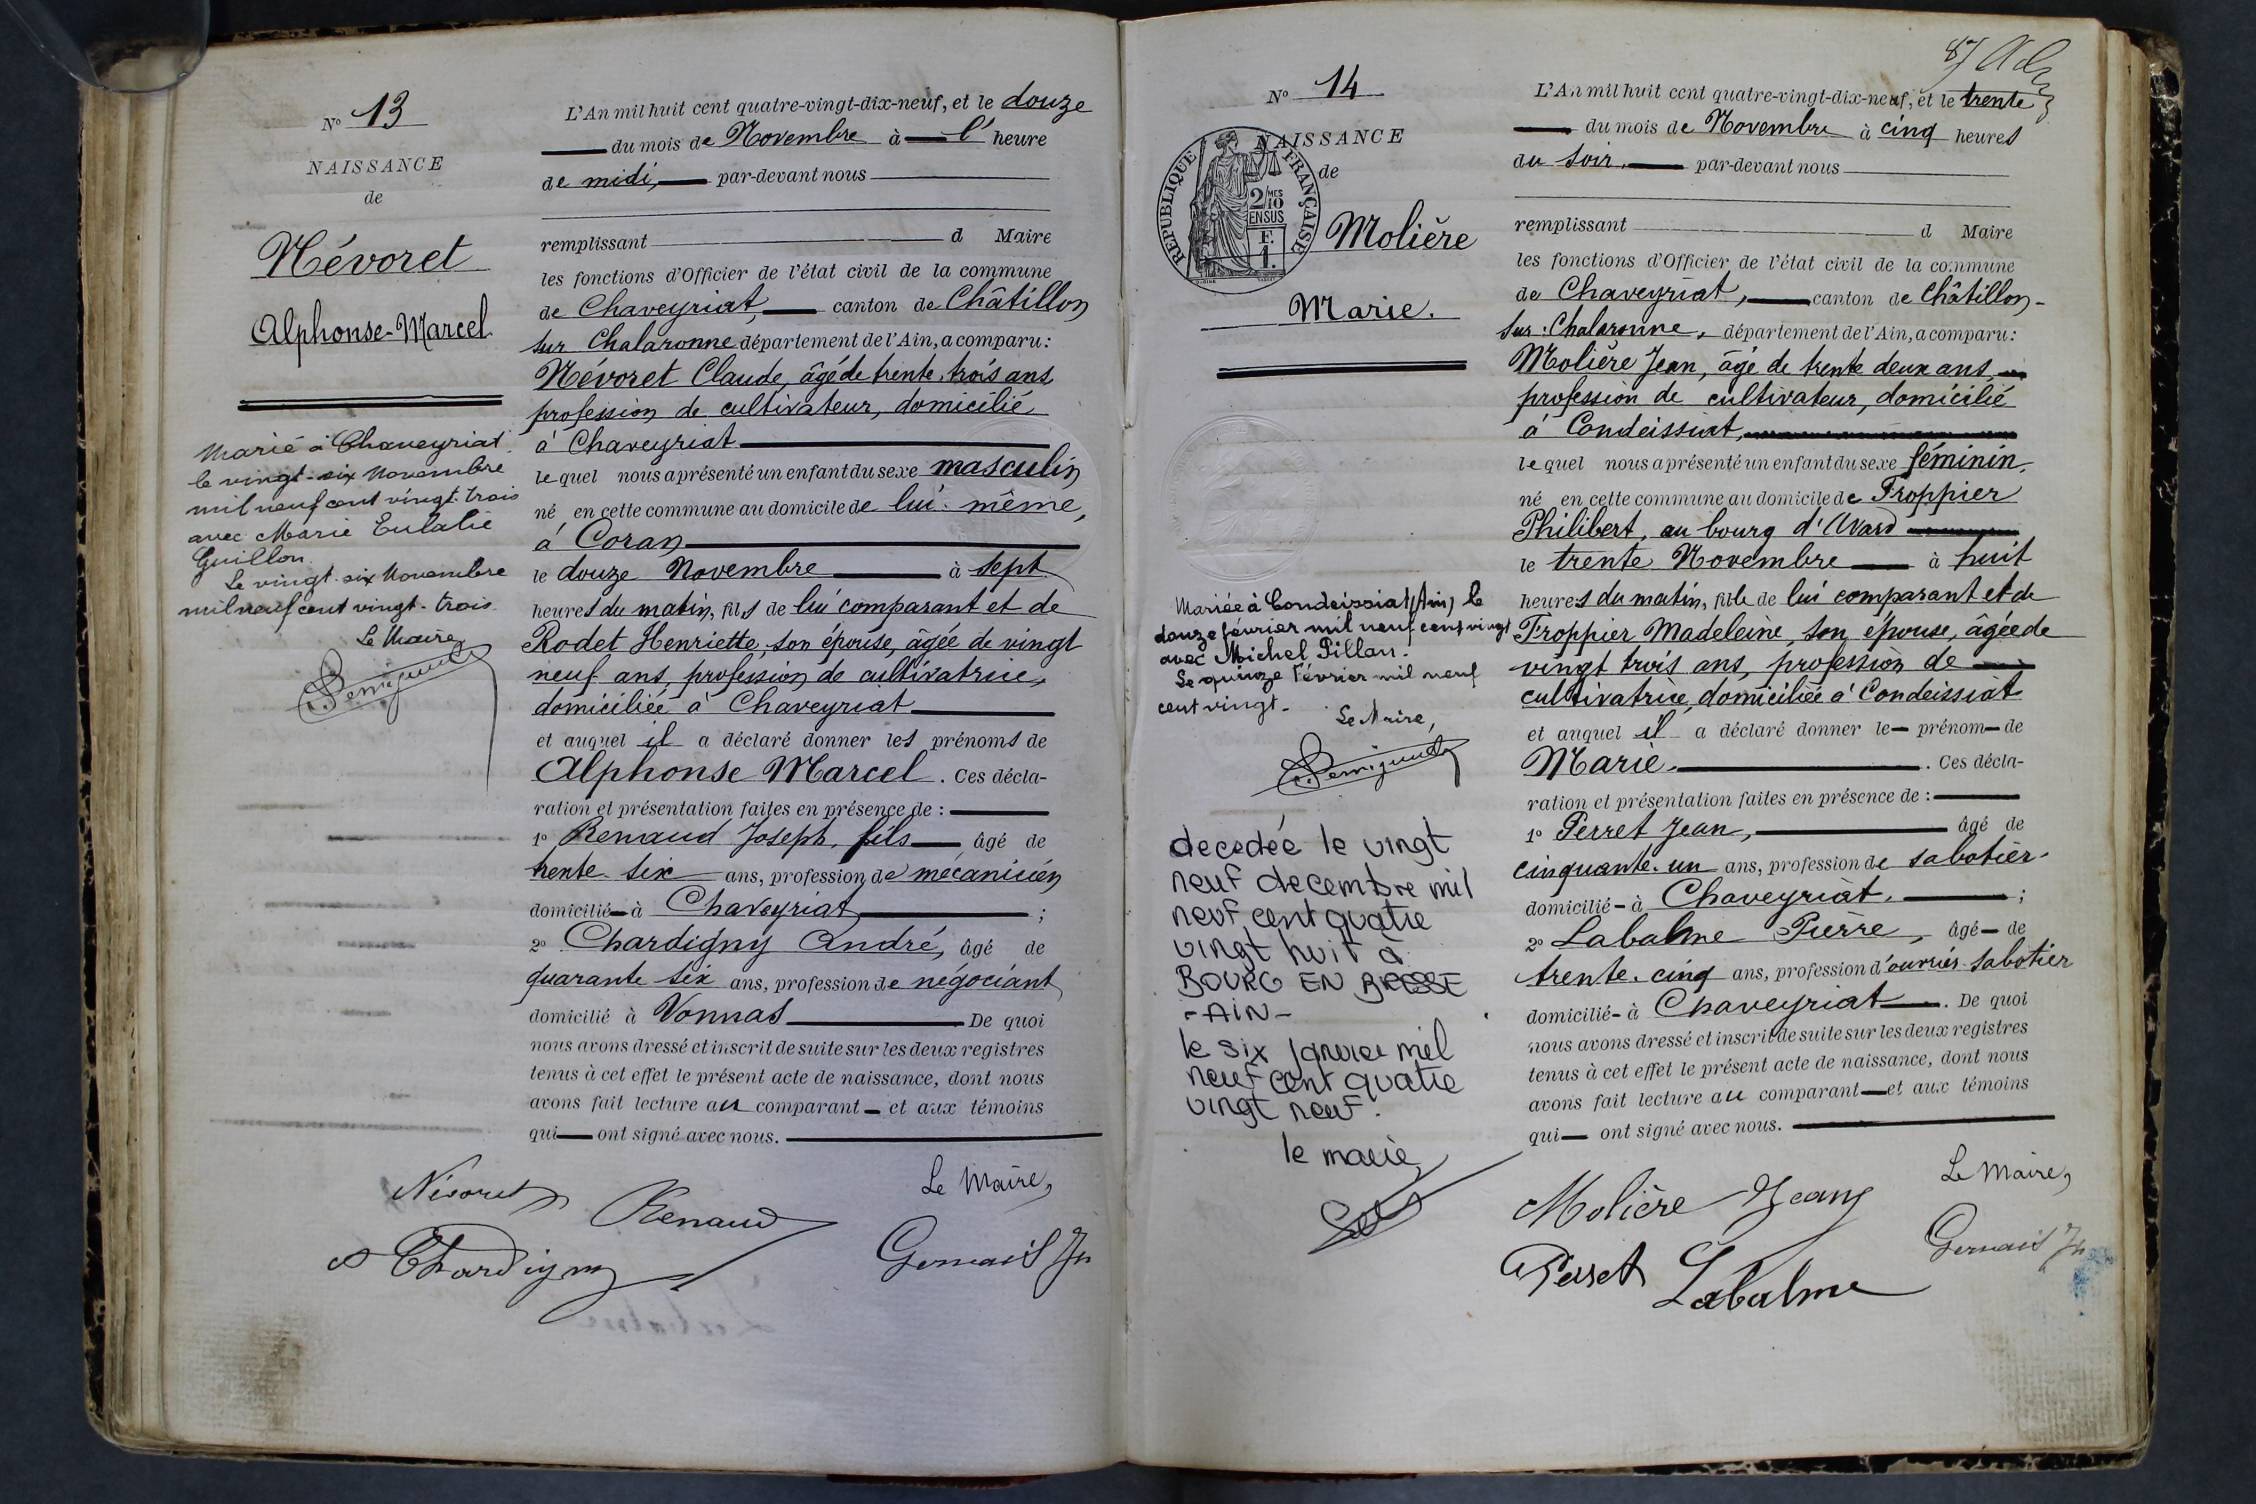 N° 13
NAISSANCE
de
Névoret
Alphonse-Marcel
Marié à Chaveyriat
le vingt-six Novembre
mil neuf cent vingt-trois
avec Marie Eulalie
Guillon.
Le vingt-six Novembre
mil neuf cent vingt-trois
Le Maire
L'An mil huit cent quatre-vingt-dix-neuf, et le douze
du mois de Novembre à l' heure
de midi, par-devant nous
remplissant d Maire
les fonctions d'Officier de l'état civil de la commune
de Chaveyriat, canton de Châtillon
sur Chalaronne département de l'Ain, a comparu :
Névoret Claude, âgé de trente trois ans
profession de cultivateur, domicilié
à Chaveyriat
lequel nous a présenté un enfant du sexe masculin
né en cette commune au domicile de lui-même,
à Coran
le douze Novembre à sept
heures du matin, fils de lui comparant et de
Rodet Henriette, son épouse, âgée de vingt
neuf ans, profession de cultivatrice,
domiciliée à Chaveyriat
et auquel il a déclaré donner les prénoms de
Alphonse Marcel. Ces décla-
ration et présentation faites en présence de :
1° Renaud Joseph, fils âgé de
trente-six ans, profession de mécanicien
domicilié à Chaveyriat ;
2° Chardigny André, âgé de
quarante six ans, profession de négociant
domicilié à Vonnas De quoi
nous avons dressé et inscrit de suite sur les deux registres
tenus à cet effet le présent acte de naissance, dont nous
avons fait lecture au comparant et aux témoins
qui ont signé avec nous.
Névoret Renaud Le Maire,
Chardigny Gervais Jn
87
N° 14
NAISSANCE
de
RÉPUBLIQUE FRANÇAISE
2/10 MES
EN SUS
F.
1.
Molière
Marie.
Mariée à Condeissiat (Ain) le
douze février mil neuf cent vingt
avec Michel Pillon.
Le quinze Février mil neuf
cent vingt.
Le Maire,
decedée le vingt
neuf decembre mil
neuf cent quatre
vingt huit à
BOURG EN BRESSE
-AIN-
le six janvier mil
neuf cent quatre
vingt neuf.
le maire
L'An mil huit cent quatre-vingt-dix-neuf, et le trente
du mois de Novembre à cinq heures
du soir, par-devant nous
remplissant d Maire
les fonctions d'Officier de l'état civil de la commune
de Chaveyriat, canton de Châtillon-
sur-Chalaronne, département de l'Ain, a comparu :
Molière Jean, âgé de trente deux ans,
profession de cultivateur, domicilié
à Condeissiat,
lequel nous a présenté un enfant du sexe féminin,
né en cette commune au domicile de Froppier
Philibert, au bourg d'
le trente Novembre à huit
heures du matin, fille de lui comparant et de
Froppier Madeleine son épouse, âgée de
vingt trois ans, profession de
cultivatrice, domiciliée à Condeissiat
et auquel il a déclaré donner le prénom de
Marie. Ces décla-
ration et présentation faites en présence de :
1° Perret Jean, âgé de
cinquante-un ans, profession de sabotier
domicilié à Chaveyriat. ;
2° Labalme Pierre, âgé de
trente-cinq ans, profession d'ouvrier sabotier
domicilié à Chaveyriat. De quoi
nous avons dressé et inscrit de suite sur les deux registres
tenus à cet effet le présent acte de naissance, dont nous
avons fait lecture au comparant et aux témoins
qui ont signé avec nous.
Molière Jean Le Maire,
Perret Labalme Gervais Jn